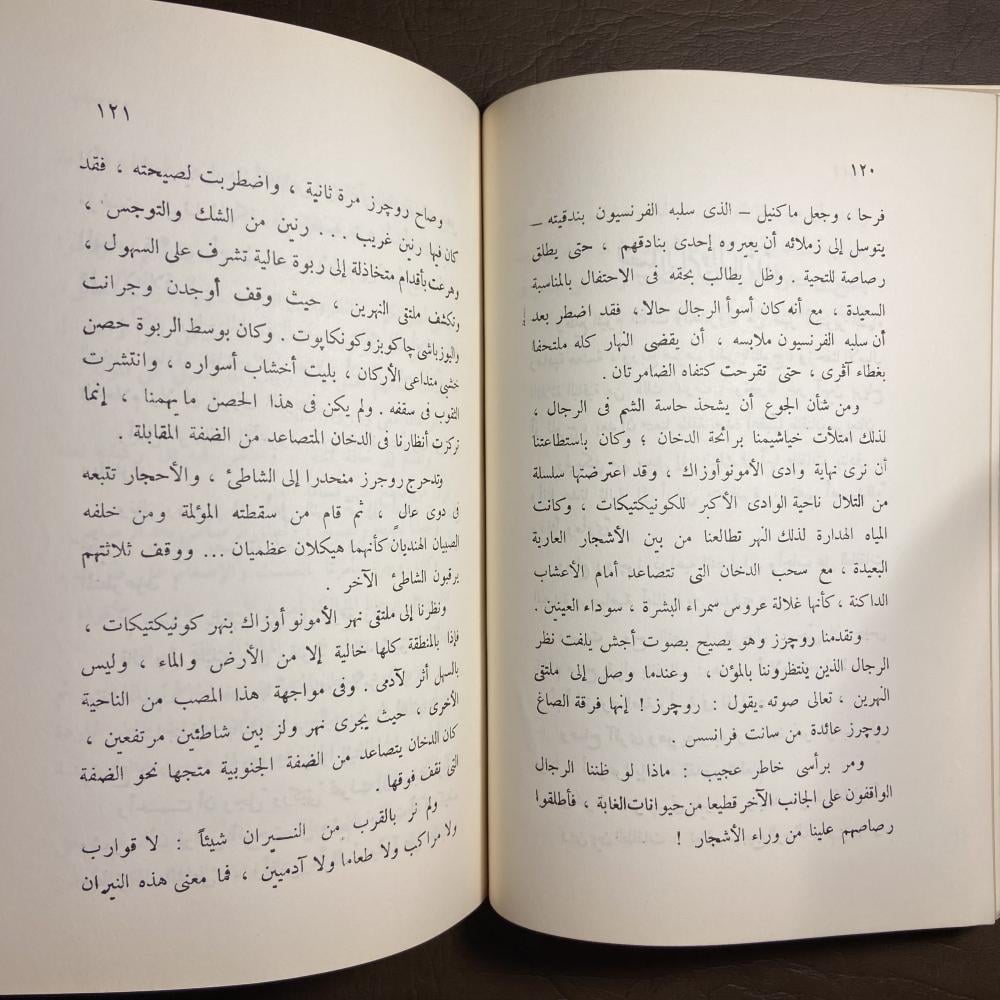 ١٢٠
فرحا ، وجعل ماكنيل — الذى سلبه الفرنسيون بندقيته —
يتوسل إلى زملائه أن يعيروه إحدى بنادقهم ، حتى يطلق
رصاصة للتحية . وظل يطالب بحقه فى الاحتفال بالمناسبة
السعيدة ، مع أنه كان أسوأ الرجال حالا ، فقد اضطر بعد
أن سلبه الفرنسيون ملابسه ، أن يقضى النهار كله ملتحفا
بغطاء آقرى ، حتى تقرحت كتفاه الضامرتان .
ومن شأن الجوع أن يشحذ حاسة الشم فى الرجال ،
لذلك امتلأت خياشيمنا برائحة الدخان ؛ وكان باستطاعتنا
أن نرى نهاية وادى الأمونوأوزاك ، وقد اعترضتها سلسلة
من التلال ناحية الوادى الأكبر للكونيكتيكات ، وكانت
المياه الهدارة لذلك النهر تطالعنا من بين الأشجار العارية
البعيدة ، مع سحب الدخان التى تتصاعد أمام الأعشاب
الداكنة ، كأنها غلالة عروس سمراء البشرة ، سوداء العينين .
وتقدمنا روچرز وهو يصيح بصوت أجش يلفت نظر
الرجال الذين ينتظروننا بالمؤن ، وعندما وصل إلى ملتقى
النهرين ، تعالى صوته يقول : روچرز ! إنها فرقة الصاغ
روچرز عائدة من سانت فرانسس .
ومر برأسى خاطر عجيب : ماذا لو ظننا الرجال
الواقفون على الجانب الآخر قطيعا من حيوانات الغابة ، فأطلقوا
رصاصهم علينا من وراء الأشجار !
١٢١
وصاح روچرز مرة ثانية ، واضطربت لصيحته ، فقد
كان فيها رنين غريب ... رنين من الشك والتوجس ،
وهرعت بأقدام متخاذلة إلى ربوة عالية تشرف على السهول ،
وتكشف ملتقى النهرين ، حيث وقف أوجدن وجرانت
واليوزباشى چاكوبز وكونكاپوت . وكان بوسط الربوة حصن
خشبى متداعى الأركان ، بليت أخشاب أسواره ، وانتشرت
الثقوب فى سقفه . ولم يكن فى هذا الحصن ما يهمنا ، إنما
تركزت أنظارنا فى الدخان المتصاعد من الضفة المقابلة .
وتدحرج روجرز منحدرا إلى الشاطئ ، والأحجار تتبعه
فى دوى عالٍ ، ثم قام من سقطته المؤلمة ومن خلفه
الصبيان الهنديان كأنهما هيكلان عظميان ... ووقف ثلاثتهم
يرقبون الشاطئ الآخر .
ونظرنا إلى ملتقى نهر الأمونو أوزاك بنهر كونيكتيكات ،
فإذا بالمنطقة كلها خالية إلا من الأرض والماء ، وليس
بالسهل أثر لآدمى . وفى مواجهة هذا المصب من الناحية
الأخرى ، حيث يجرى نهر ولز بين شاطئين مرتفعين ،
كان الدخان يتصاعد من الضفة الجنوبية متجها نحو الضفة
التى نقف فوقها .
ولم نر بالقرب من النيران شيئاً : لا قوارب
ولا مراكب ولا طعاما ولا آدميين ، فما معنى هذه النيران